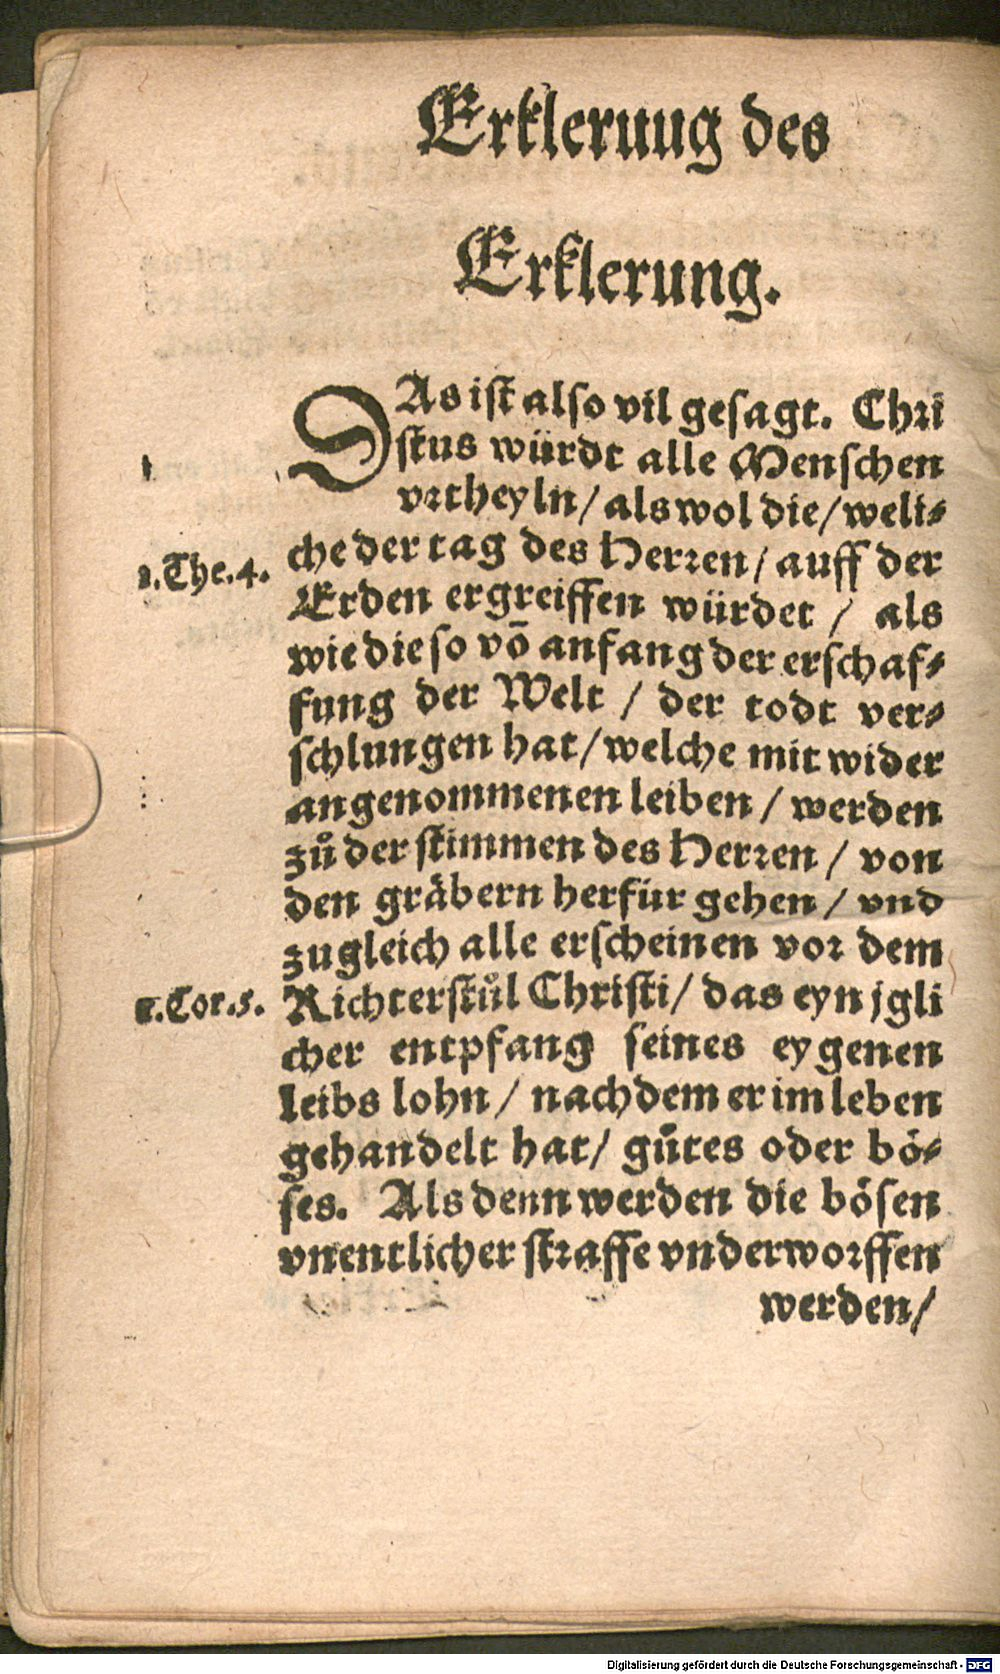 Erkleruug des
Erklerung.
DAs ist also vil gesagt. Chri
stus würdt alle Menschen
vrtheyln/ als wol die/ weli⸗
1.The.4.
che der tag des Herren/ auff der
Erden ergreiffen würdet / als
wie die so vō anfang der erschaf⸗
fung der Welt / der todt ver⸗
schlungen hat/ welche mit wider
angenommenen leiben / werden
zů der stimmen des Herren / von
den gräbern herfür gehen / vnd
zugleich alle erscheinen vor dem
2.Cor.5.
Richterstůl Christi/ das eyn jgli
cher entpfang seines eygenen
leibs lohn / nach dem er im leben
gehandelt hat/ gůtes oder bö⸗
ses. Als denn werden die bösen
vnentlicher straffe vnderworffen
werden/
Digitalisierung gefördert durch die Deutsche Forschungsgemeinschaft - DFG